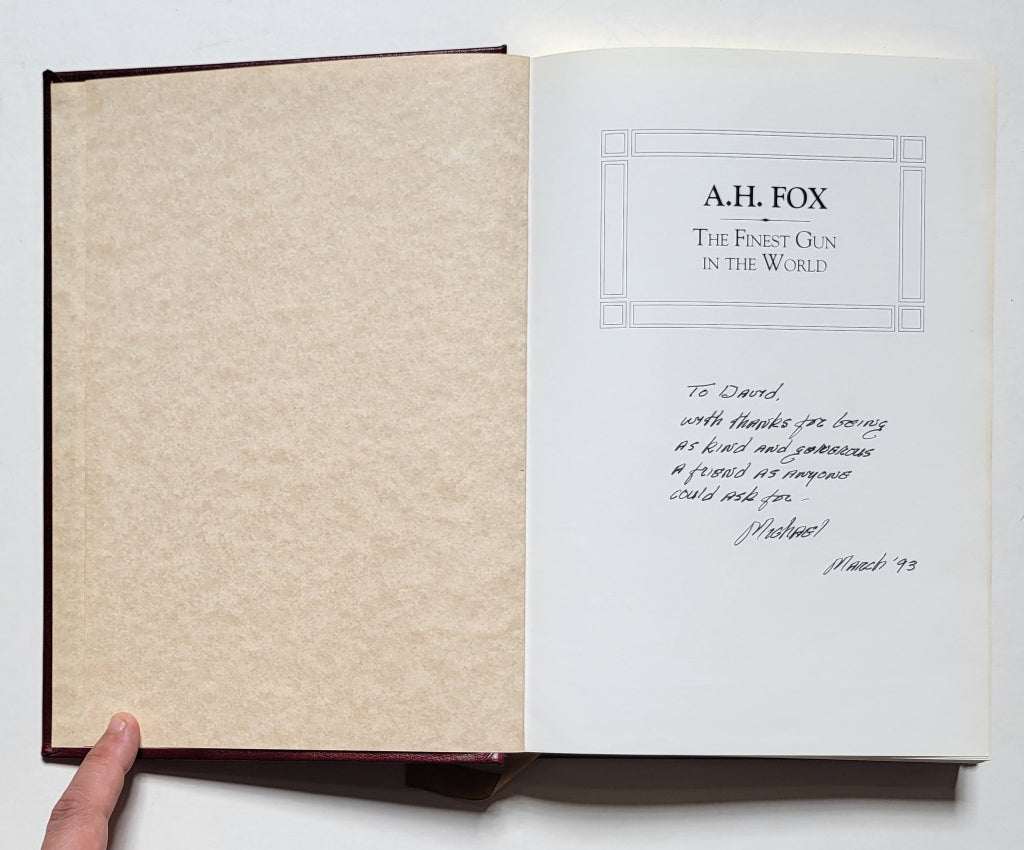 A.H. FOX
THE FINEST GUN
IN THE WORLD
To David,
with thanks for being
as kind and generous
a friend as anyone
could ask for -
Michael
March '93